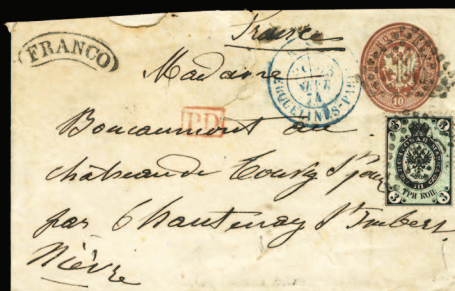 France
FRANCO
Madame
PD
Boucaumont au
château de Toury S^t
par Chantenay S^t Imbert
Nièvre
10
3 3
ТРИ КОП.
3 3